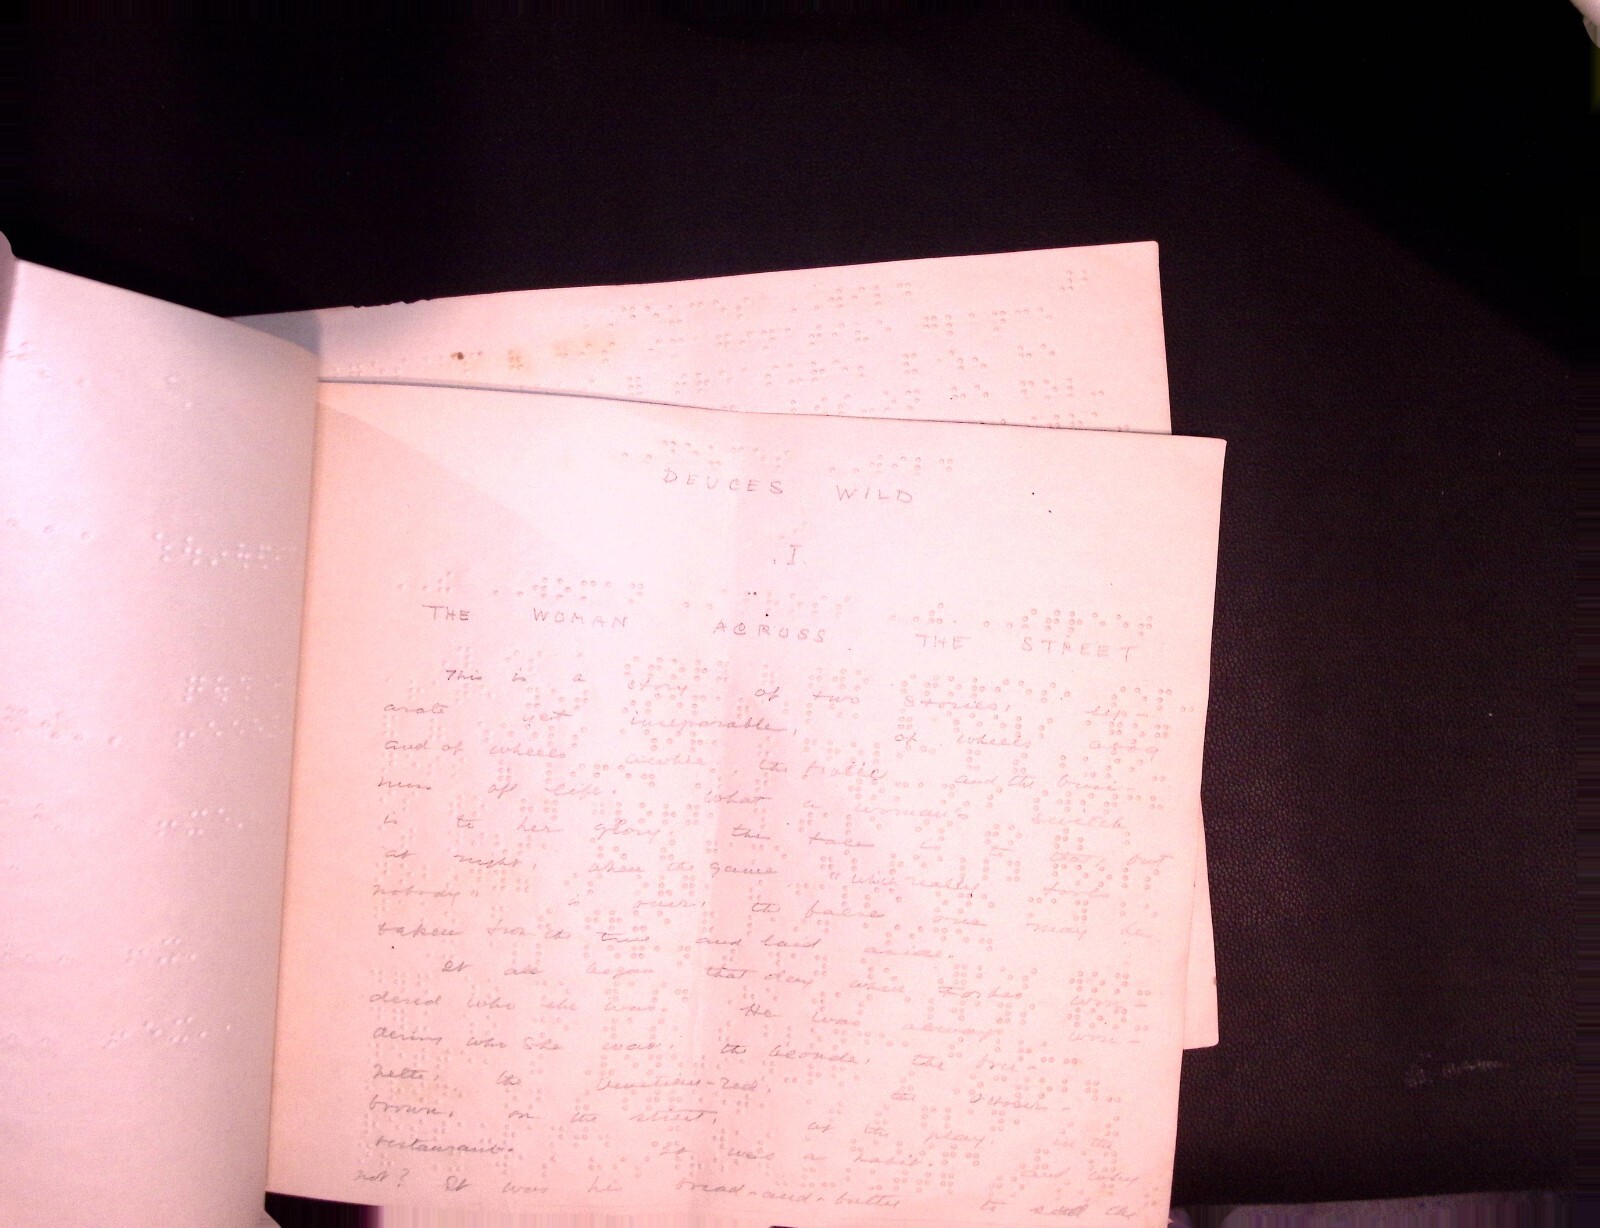 DEUCES WILD
I
THE WOMAN ACROSS THE STREET
This is a story of two stories, sep-
arate yet inseparable, of wheels agog
and of wheels awhile, the frolic and the busi-
ness of life. What a woman's switch
is to her glory, this tale is to that, but
at night, when the game "which really fools
nobody" is over, the false one may be
taken from the true and laid aside.
It all began that day when Forbes won-
dered who she was. He was always won-
dering who she was: the blonde, the bru-
nette, the venetian-red, the
brown, on the street, at the play, in the
restaurant. It was a habit. And why
not? It was his bread-and-butter to